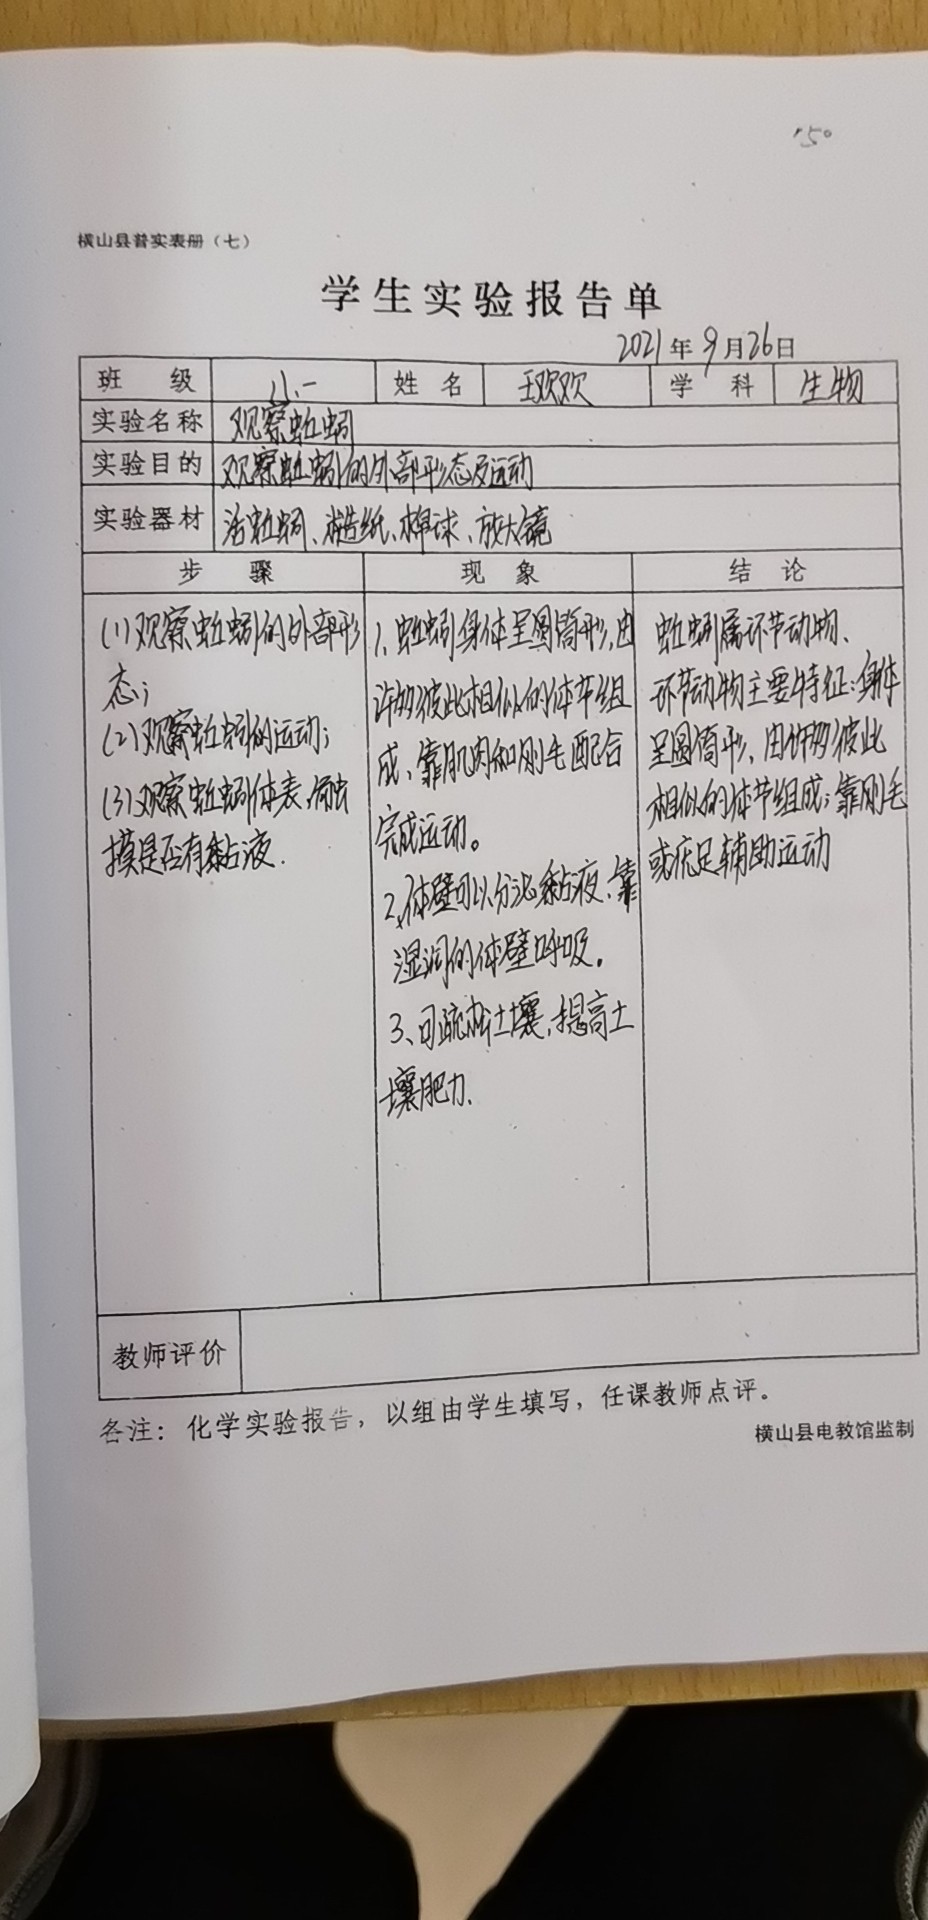 '50
横山县普实表册（七）
学生实验报告单
2021年9月26日
班级 八一 姓名 王欢欢 学科 生物
实验名称 观察蚯蚓
实验目的 观察蚯蚓的外部形态及运动
实验器材 活蚯蚓、糙纸、棉球、放大镜
步骤 现象 结论
(1)观察蚯蚓的外部形
态;
(2)观察蚯蚓的运动;
(3)观察蚯蚓体表、触
摸是否有黏液.
1、蚯蚓身体呈圆筒形,由
许多彼此相似的体节组
成、靠肌肉和刚毛配合
完成运动。
2、体壁可以分泌黏液、靠
湿润的体壁呼吸。
3、可疏松土壤,提高土
壤肥力.
蚯蚓属环节动物、
环节动物主要特征:身体
呈圆筒形、由许多彼此
相似的体节组成;靠刚毛
或疣足辅助运动
教师评价
各注：化学实验报告，以组由学生填写，任课教师点评。
横山县电教馆监制